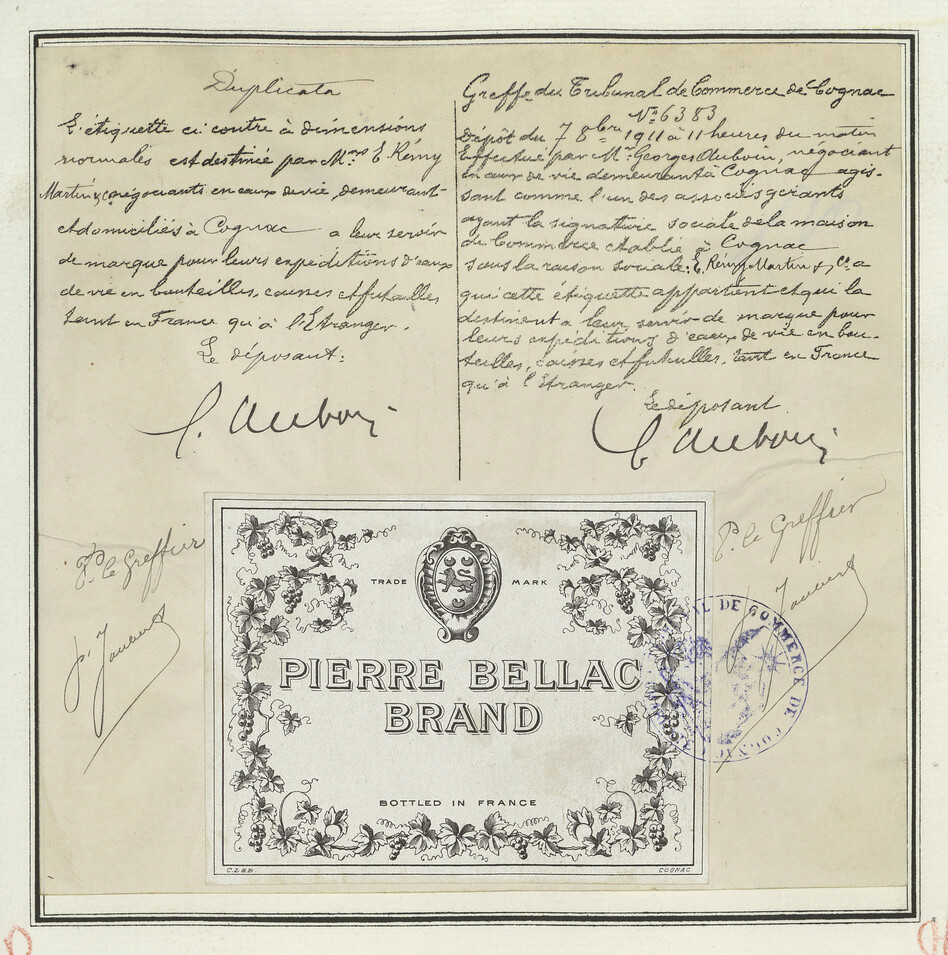 Duplicata
L'étiquette ci contre à dimensions
normales est destinée par M.rs E. Rémy
Martin & Co négociants en eaux de vie, demeurant
et domiciliés à Cognac a leur servir
de marque pour leurs expéditions d'eaux
de vie en bouteilles, caisses et futailles
tant en France qu'à l'Etranger.
Le déposant:
G. Auboin
Greffe du Tribunal de Commerce de Cognac
No 6383
Dépôt du 7 8bre 1911 à 11 heures du matin
Effectué par Mr Georges Auboin, négociant
en eaux de vie demeurant à Cognac agis-
sant comme l'un des associés gérants
ayant la signature sociale de la maison
de Commerce établie à Cognac
sous la raison sociale: E. Rémy Martin & Co a
qui cette étiquette appartient et qui la
destinent a leur servir de marque pour
leurs expéditions d'eaux de vie en bou-
teilles, caisses et futailles, tant en France
qu'à l'Etranger.
Le déposant
G Auboin
P. le Greffier
P. le Greffier
TRADE MARK
PIERRE BELLAC
BRAND
BOTTLED IN FRANCE
C.L & B.
COGNAC
DE COMMERCE DE COGNAC